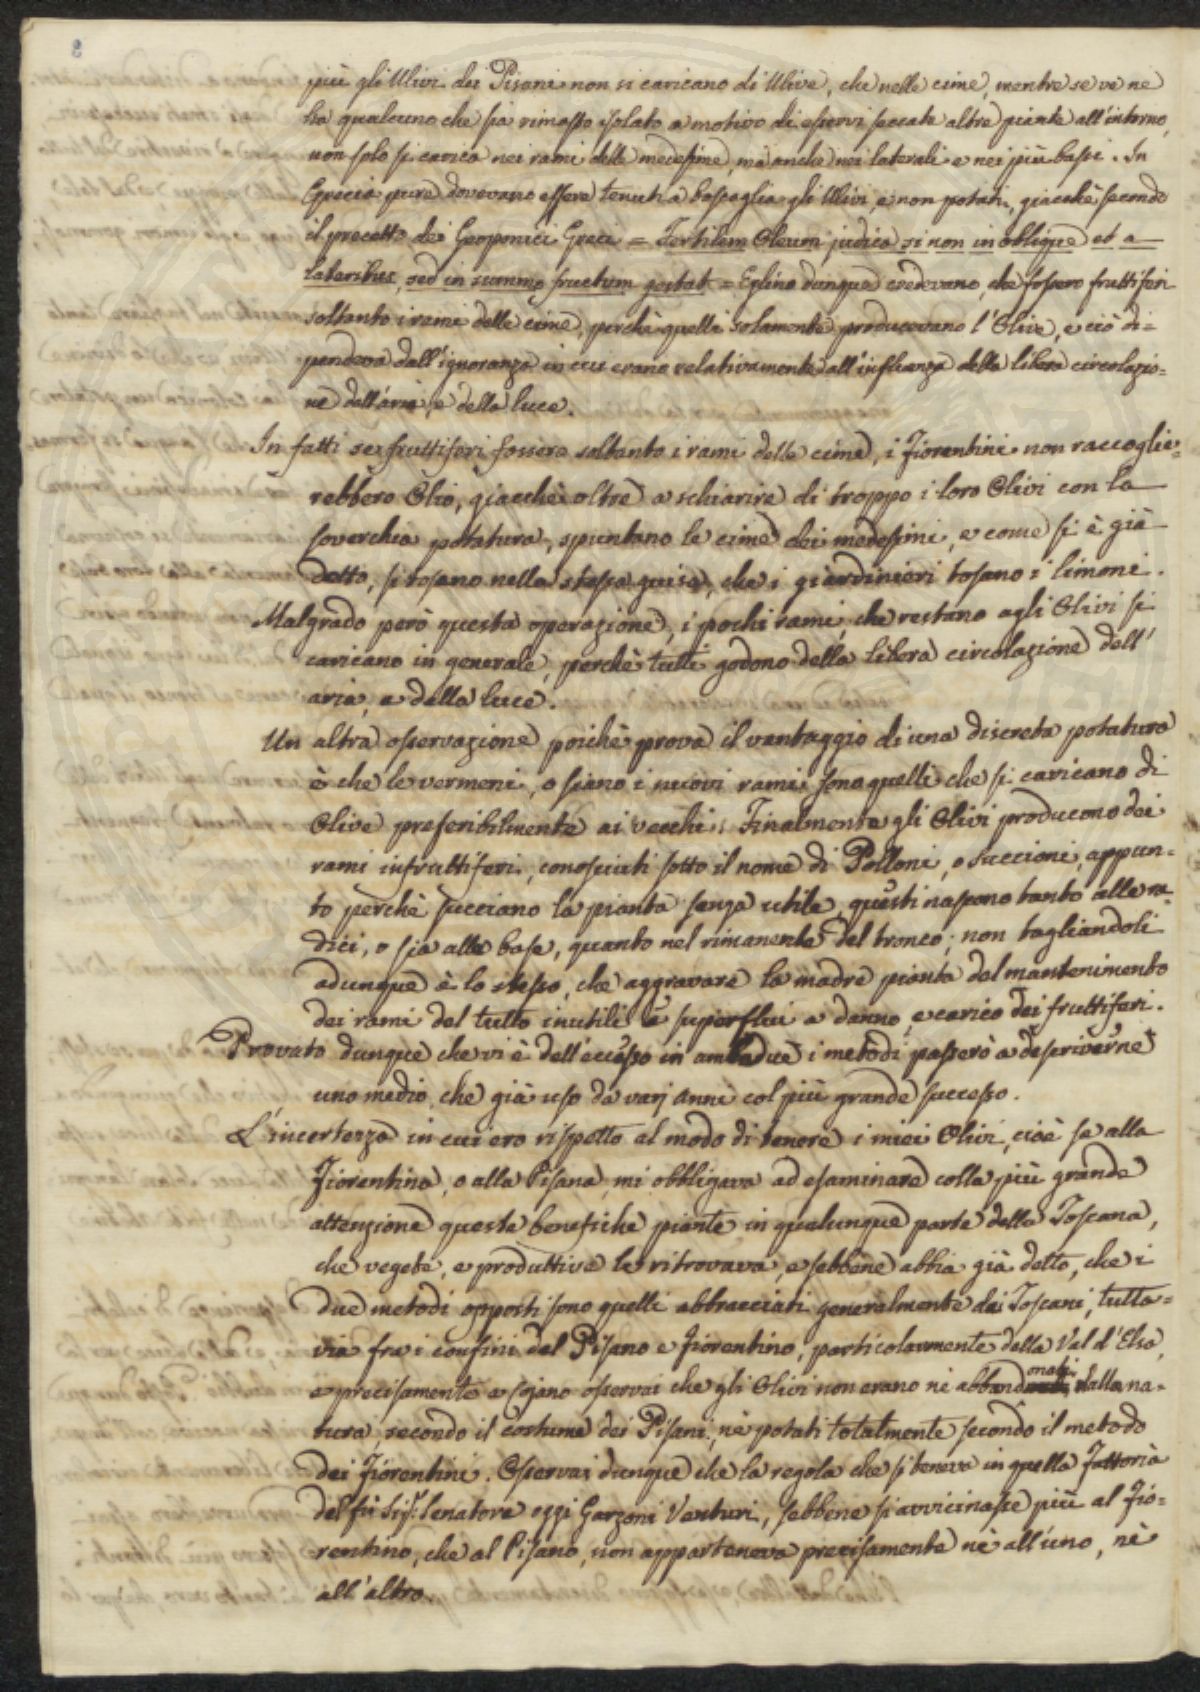 8
più gli Ulivi dei Pisani non si caricano di Ulive, che nelle cime, mentre se ve ne
ha qualcuno che sia rimasto isolato a motivo di esservi seccate altre piante all'intorno,
non solo si carica nei rami delle medesime, ma anche nei laterali e nei più bassi. In
Grecia pure dovevano essere tenuti a boscaglia gli Ulivi, e non potati, giacchè secondo
il precetto dei Geoponici Greci = Fertilem Oleum judica si non in oblique et a
lateribus, sed in summo fructum gestat = Eglino dunque credevano, che fossero fruttiferi
soltanto i rami delle cime, perchè quelli solamente producevano l'Olive, e ciò di=
pendeva dall'ignoranza in cui erano relativamente all'influenza della libera circolazio=
ne dell'aria, e della luce.
In fatti se fruttiferi fossero soltanto i rami delle cime, i Fiorentini non raccoglie=
rebbero Olio, giacchè oltre a schiarire di troppo i loro Olivi con la
soverchia potatura, spuntano le cime dei medesimi, e come si è già
detto, si tosano nella stessa guisa, che i giardinieri tosano i limoni.
Malgrado però questa operazione, i pochi rami, che restano agli Olivi si
caricano in generale, perchè tutti godono della libera circolazione dell'
aria, e della luce.
Un altra osservazione poichè prova il vantaggio di una discreta potatura
è che le vermene, o siano i nuovi rami sono quelli che si caricano di
Olive preferibilmente ai vecchi. Finalmente gli Olivi producono dei
rami infruttiferi, conosciuti sotto il nome di Polloni, o succioni, appun=
to perchè succiano la pianta senza utile, questi nascono tanto alle ra=
dici, o sia alla base, quanto nel rimanente del tronco; non tagliandoli
adunque è lo stesso, che aggravare la madre pianta del mantenimento
dei rami del tutto inutili e superflui a danno, e carico dei fruttiferi.
Provato dunque che vi è dell'eccesso in ambedue i metodi passerò a descriverne
uno medio, che già uso da varj anni col più grande successo.
L'incertezza in cui ero rispetto al modo di tenere i miei Olivi, cioè se alla
Fiorentina, o alla Pisana, mi obbligava ad esaminare colla più grande
attenzione queste benefiche piante in qualunque parte della Toscana,
che vegete, e produttive le ritrovava, e sebbene abbia già detto, che i
due metodi opposti sono quelli abbracciati generalmente dai Toscani, tutta=
via fra i confini del Pisano e Fiorentino, particolarmente della Val d'Elsa,
e precisamente a Cojano osservai che gli Olivi non erano nè abbandonati dalla na=
tura, secondo il costume dei Pisani, nè potati totalmente secondo il metodo
dei Fiorentini. Osservai dunque che la regola che si teneva in quella Fattoria
del fù Sigr. Senatore oggi Garzoni Venturi, sebbene si avvicinasse più al Fio=
rentino, che al Pisano, non apparteneva precisamente nè all'uno, nè
all'altro.